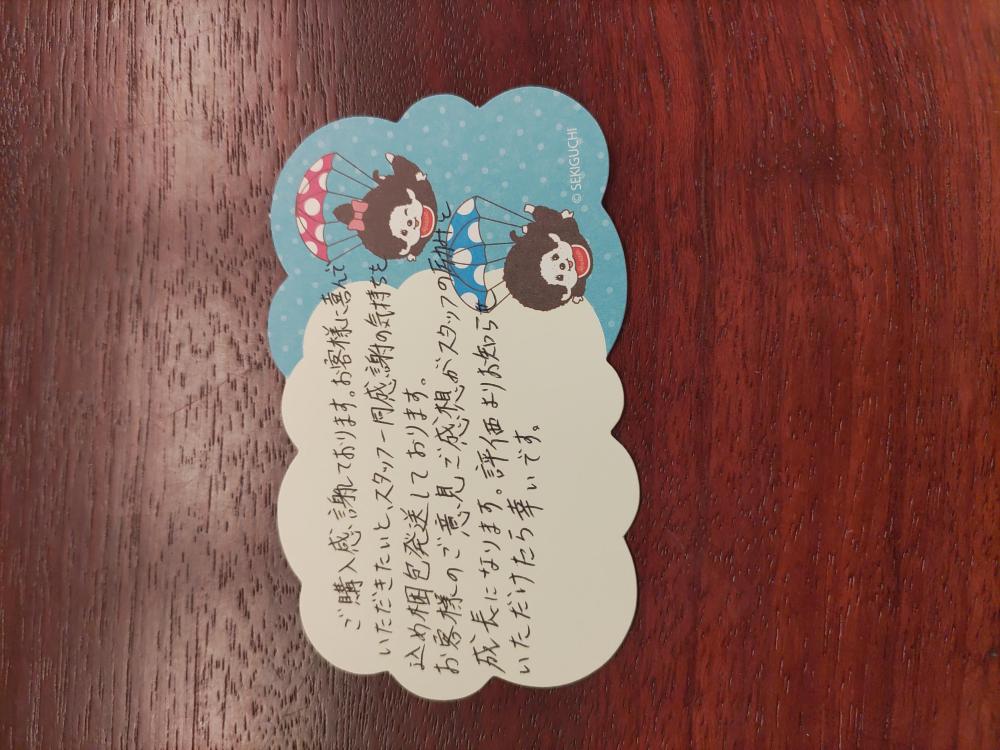 ご購入感謝しております。お客様に喜んで
いただきたいと、スタッフ一同感謝の気持ちを
込め梱包発送しております。
お客様のご意見ご感想がスタッフの励みと
成長になります。評価よりお知らせ
いただけたら幸いです。
© SEKIGUCHI